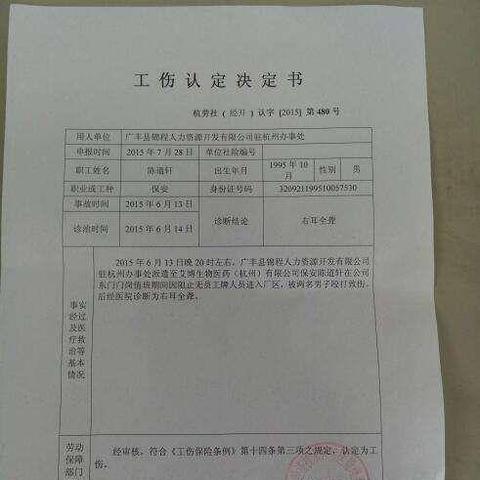 工伤认定决定书
杭劳社（经开）认字 [2015] 第 480 号
用人单位 广丰县锦程人力资源开发有限公司驻杭州办事处
申报时间 2015 年 7 月 28 日 单位社险编号
职工姓名 陈道轩 出生年月 1995 年 10 月 性别 男
职业或工种 保安 身份证号码 320921199510057530
事故时间 2015 年 6 月 13 日
诊治时间 2015 年 6 月 14 日 诊断结论 右耳全聋
事实经过及医疗救治等基本情况
2015 年 6 月 13 日晚 20 时左右，广丰县锦程人力资源开发有限公司
驻杭州办事处派遣至艾博生物医药（杭州）有限公司保安陈道轩在公司
东门门岗值班期间因阻止无员工牌人员进入厂区，被两名男子殴打致伤。
后经医院诊断为右耳全聋。
劳动保障部门
经审核，符合《工伤保险条例》第十四条第三项之规定，认定为工
伤。